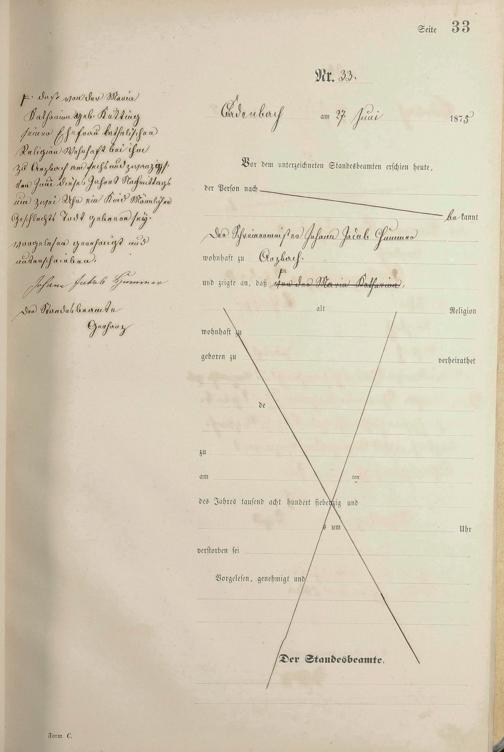 Seite 33
Nr. 33.
Cadenbach am 27 Juni 1875
Vor dem unterzeichneten Standesbeamten erschien heute,
der Person nach
be kannt
der Schreinermeister Johann Jacob Hummer
wohnhaft zu Arzbach
und zeigte an, daß von der Maria Katharina
alt Religion
wohnhaft zu
geboren zu verheirathet
de
zu
am ten
des Jahres tausend acht hundert siebenzig und
s um Uhr
verstorben sei
Vorgelesen, genehmigt und
Der Standesbeamte.
F. daß von der Maria
Katharina geb. Kutting
seiner Ehefrau katholischen
Religion wohnhaft bei ihm
zu Arzbach am sechsundzwanzigst
ten Juni dieses Jahres Nachmittags
um zwei Uhr ein Kind Männlichen
Geschlechts todt geboren sei.
vorgelesen genehmigt und
unterschrieben.
Johann Jakob Hummer
Der Standesbeamte
Gerharz
Form C.